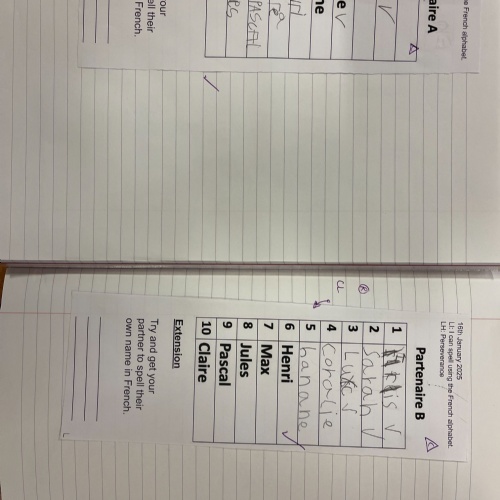 e French alphabet.
aire A
V
e V
ne
PASCAL
es
our
ell their
French.
16th January 2025
LI: I can spell using the French alphabet.
LH: Perseverance
Partenaire B
1
2 Sarah V
3 Luc V
4 Coralie
5 hanane
6 Henri
7 Max
8 Jules
9 Pascal
10 Claire
Extension
Try and get your
partner to spell their
own name in French.
CL